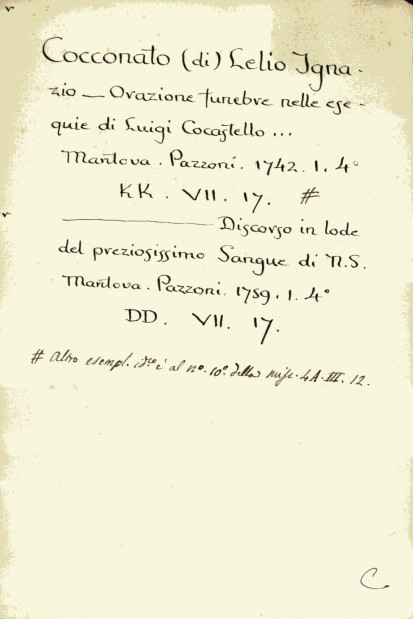 Cocconato (di) Lelio Igna-
zio — Orazione funebre nelle ese-
quie di Luigi Cocastello ...
Mantova. Pazzoni. 1742. 1. 4°
KK. VII. 17. #
——— Discorso in lode
del preziosissimo Sangue di N.S.
Mantova. Pazzoni. 1759. 1. 4°
DD. VII. 17.
# Altro esempl. id.co è al n°. 10°. della misc. 4A. III. 12.
C.